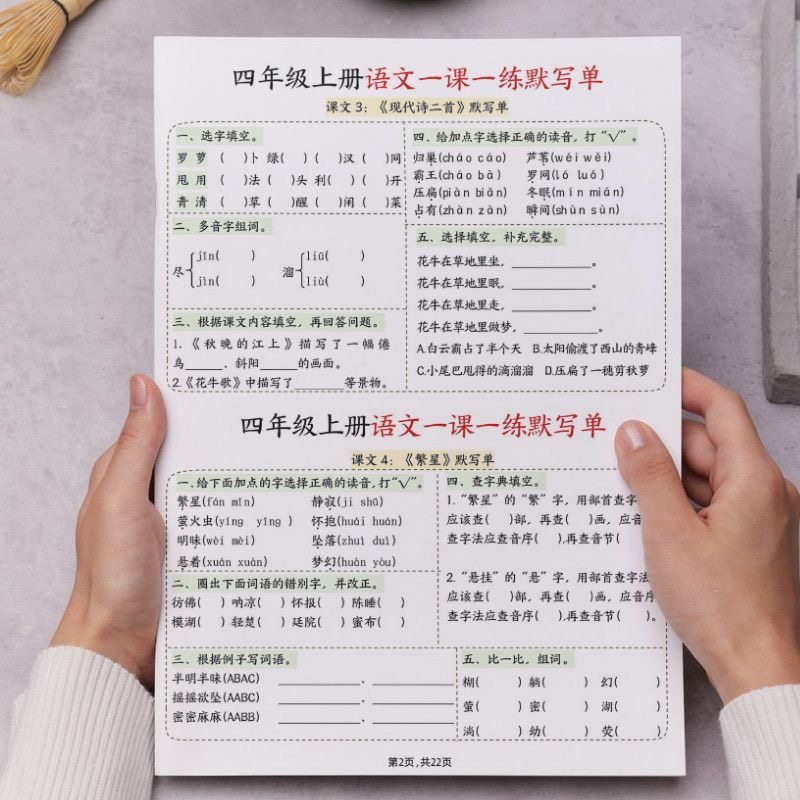 四年级上册语文一课一练默写单
课文3:《现代诗二首》默写单
一、选字填空。
罗 萝 ( )卜 绿( ) ( )汉 ( )网
甩 用 ( )法 ( )头 利( ) ( )开
青 清 ( )草 ( )醒 ( )闲 ( )菜
二、多音字组词。
尽 jǐn( ) jìn( )
溜 liū( ) liù( )
三、根据课文内容填空，再回答问题。
1.《秋晚的江上》描写了一幅倦
鸟______、斜阳______的画面。
2.《花牛歌》中描写了________等景物。
四、给加点字选择正确的读音，打“√”。
归巢(cháo cáo) 芦苇(wéi wěi)
霸王(cháo bà) 罗网(ló luó)
压扁(piàn biǎn) 冬眠(mín mián)
占有(zhàn zàn) 瞬间(shùn sùn)
五、选择填空，补充完整。
花牛在草地里坐，____________。
花牛在草地里眠，____________。
花牛在草地里走，____________。
花牛在草地里做梦，____________。
A.白云霸占了半个天 B.太阳偷渡了西山的青峰
C.小尾巴甩得的滴溜溜 D.压扁了一穗剪秋萝
四年级上册语文一课一练默写单
课文4:《繁星》默写单
一、给下面加点的字选择正确的读音,打“√”。
繁星(fán mǐn) 静寂(jì shū)
萤火虫(yíng yīng ) 怀抱(huái huán)
明昧(wèi mèi) 坠落(zhuì duì)
悬着(xuán xuàn) 梦幻(huàn yòu)
二、圈出下面词语的错别字，并改正。
彷佛( ) 呐凉( ) 怀报( ) 陈睡( )
模湖( ) 轻楚( ) 廷院( ) 蜜布( )
三、根据例子写词语。
半明半昧(ABAC) ____________、____________
摇摇欲坠(AABC) ____________、____________
密密麻麻(AABB) ____________、____________
四、查字典填空。
1.“繁星”的“繁”字，用部首查字
应该查( )部，再查( )画，应音
查字法应查音序( ),再查音节(
2.“悬挂”的“悬”字，用部首查字法
应该查( )部，再查( )画，应音序
查字法应查音序( ),再查音节( )。
五、比一比，组词。
糊( ) 躺( ) 幻( )
萤( ) 密( ) 湖( )
淌( ) 幼( ) 荧( )
第2页,共22页